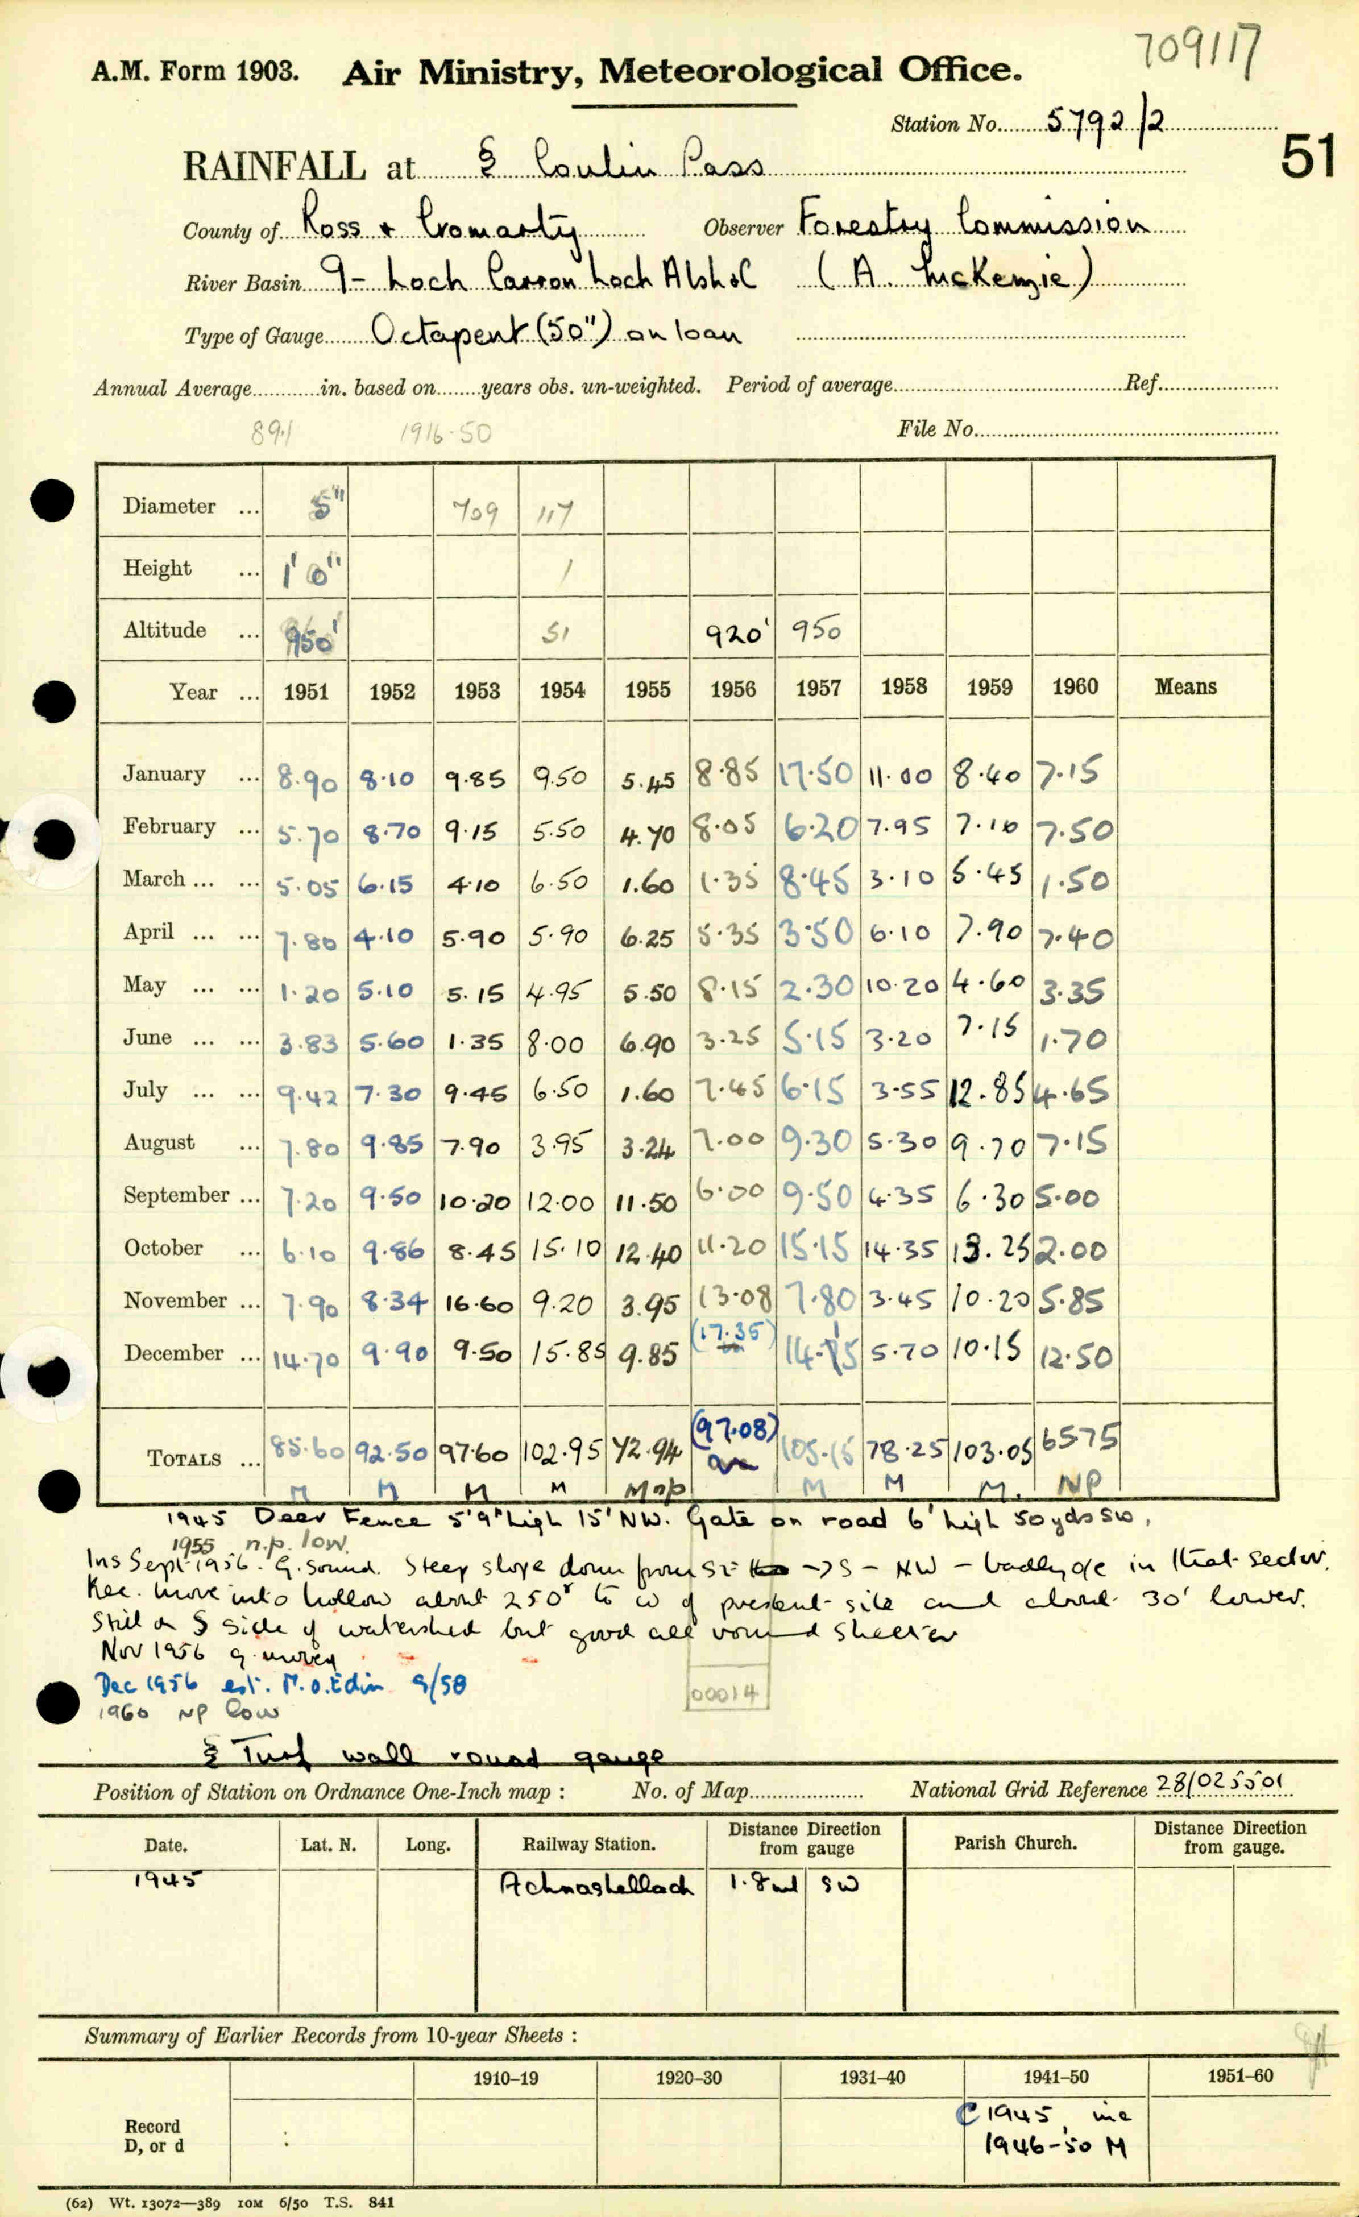 709117
A.M. Form 1903. Air Ministry, Meteorological Office.
Station No. 5792/2
51
RAINFALL at § Coulin Pass
County of Ross & Cromarty Observer Forestry Commission
River Basin 9- Loch Carron Loch Alsh &c (A. McKenzie)
Type of Gauge Octapent (50") on loan
Annual Average in. based on years obs. un-weighted. Period of average Ref.
89.1 1916-50 File No.
Diameter ... 5" 709 117
Height ... 1' 0" 1
Altitude ... 950' 51 920' 950
Year ... 1951 1952 1953 1954 1955 1956 1957 1958 1959 1960 Means
January ... 8.90 8.10 9.85 9.50 5.45 8.85 17.50 11.00 8.40 7.15
February ... 5.70 8.70 9.15 5.50 4.70 8.05 6.20 7.95 7.10 7.50
March ... ... 5.05 6.15 4.10 6.50 1.60 1.35 8.45 3.10 5.45 1.50
April ... ... 7.80 4.10 5.90 5.90 6.25 5.35 3.50 6.10 7.90 7.40
May ... ... 1.20 5.10 5.15 4.95 5.50 8.15 2.30 10.20 4.60 3.35
June ... ... 3.83 5.60 1.35 8.00 6.90 3.25 5.15 3.20 7.15 1.70
July ... ... 9.42 7.30 9.45 6.50 1.60 7.45 6.15 3.55 12.85 4.65
August ... 7.80 9.85 7.90 3.95 3.24 7.00 9.30 5.30 9.70 7.15
September ... 7.20 9.50 10.20 12.00 11.50 6.00 9.50 4.35 6.30 5.00
October ... 6.10 9.86 8.45 15.10 12.40 11.20 15.15 14.35 13.25 2.00
November ... 7.90 8.34 16.60 9.20 3.95 13.08 7.80 3.45 10.20 5.85
December ... 14.70 9.90 9.50 15.85 9.85 (17.35) 14.15 5.70 10.15 12.50
TOTALS ... 85.60 92.50 97.60 102.95 72.94 (97.08) 105.15 78.25 103.05 65.75
M M M M M np M M M. NP
1945 Deer Fence 5'9" high 15' NW. Gate on road 6' high 50yds SW.
1955 n.p. low.
Ins Sept 1956. G. Sound. Steep slope down from SE → S - NW - badly o/e in that sector.
Rec. move into hollow about 250' to W of present site and about 30' lower.
Still on S side of watershed but good all round shelter
Nov 1956 g. moved
Dec 1956 est. M.O. Edin 9/58
00014
1960 NP low
§ Turf wall round gauge
Position of Station on Ordnance One-Inch map : No. of Map National Grid Reference 28/025501
Date. Lat. N. Long. Railway Station. Distance Direction from gauge Parish Church. Distance Direction from gauge.
1945 Achnashellach 1.8ml SW
Summary of Earlier Records from 10-year Sheets :
1910–19 1920–30 1931–40 1941–50 1951–60
Record D, or d
C 1945 inc
1946-50 M
(62) Wt. 13072—389 10M 6/50 T.S. 841